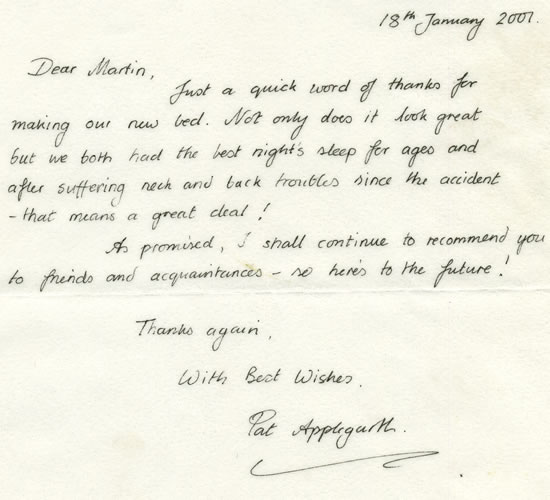 18th January 2001.
Dear Martin,
Just a quick word of thanks for
making our new bed. Not only does it look great
but we both had the best night's sleep for ages and
after suffering neck and back troubles since the accident
- that means a great deal!
As promised, I shall continue to recommend you
to friends and acquaintances - so here's to the future!
Thanks again,
With Best Wishes.
Pat Applegarth.